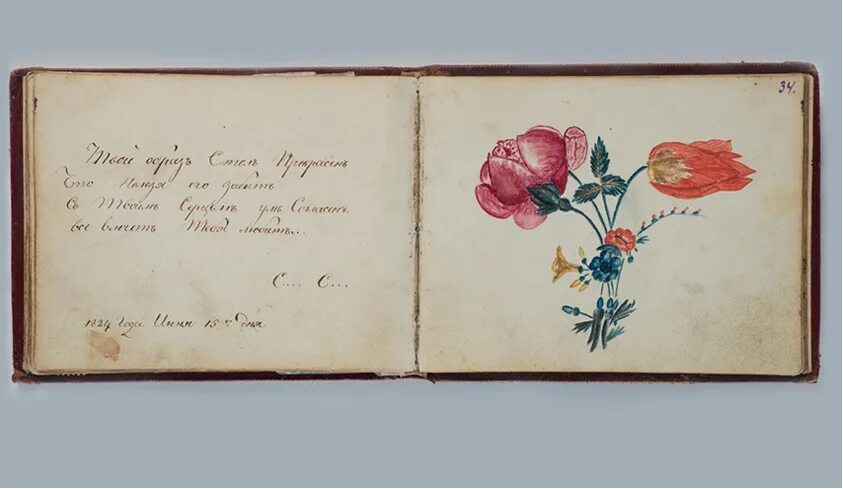 Твой образъ Столь Прекрасенъ
Что Нельзя его забыть
Съ Твоимъ Серцемъ умъ Согласенъ.
все влечетъ Тебя любить...
С... С...
1824 Года Июня 15го Дня
34.